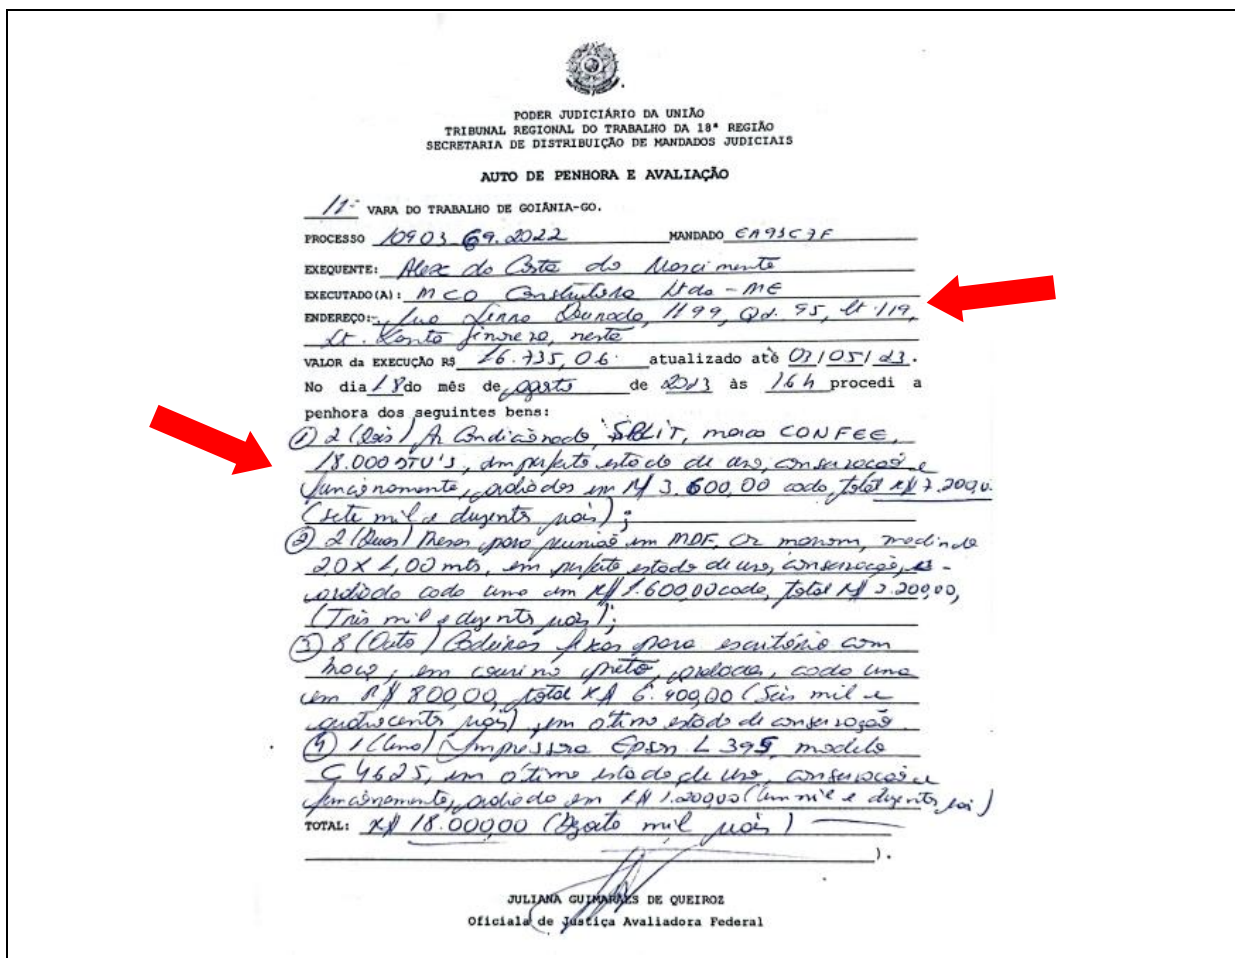 PODER JUDICIÁRIO DA UNIÃO
TRIBUNAL REGIONAL DO TRABALHO DA 18ª REGIÃO
SECRETARIA DE DISTRIBUIÇÃO DE MANDADOS JUDICIAIS
AUTO DE PENHORA E AVALIAÇÃO
11ª VARA DO TRABALHO DE GOIÂNIA-GO.
PROCESSO 10903 69.2022 MANDADO EA93C7F
EXEQUENTE: Alex da Costa do Nascimento
EXECUTADO(A): MCO Construtora Ltda - ME
ENDEREÇO: Rua Serra Dourada, 1199, Qd. 95, Lt. 119,
St. Santa Genoveva, nesta
VALOR da EXECUÇÃO R$ 16.735,06 atualizado até 03/05/23.
No dia 18 do mês de agosto de 2023 às 16h procedi a
penhora dos seguintes bens:
① 2 (dois) Ar Condicionado, SPLIT, marca CONFEE,
18.000 BTU'S, em perfeito estado de uso, conservação e
funcionamento, avaliados em R$ 3.600,00 cada, total R$ 7.200,00
(sete mil e duzentos reais);
② 2 (Duas) Mesas para reunião em MDF, cor marrom, medindo
2,0 X 1,00 mts, em perfeito estado de uso, conservação,
avaliado cada uma em R$ 1.600,00 cada, total R$ 3.200,00,
(Três mil e duzentos reais);
③ 8 (Oito) Cadeiras fixas para escritório com
braço, em courino preto, avaliadas, cada uma
em R$ 800,00, total R$ 6.400,00 (Seis mil e
quatrocentos reais), em ótimo estado de conservação
④ 1 (Uma) Impressora Epson L 395, modelo
C462S, em ótimo estado de uso, conservação e
funcionamento, avaliado em R$ 1.200,00 (Um mil e duzentos reais)
TOTAL: R$ 18.000,00 (Dezoito mil reais)
).
JULIANA GUIMARÃES DE QUEIROZ
Oficiala de Justiça Avaliadora Federal